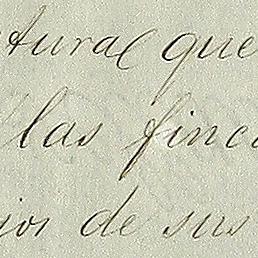 tural que
las finc
jos de sus